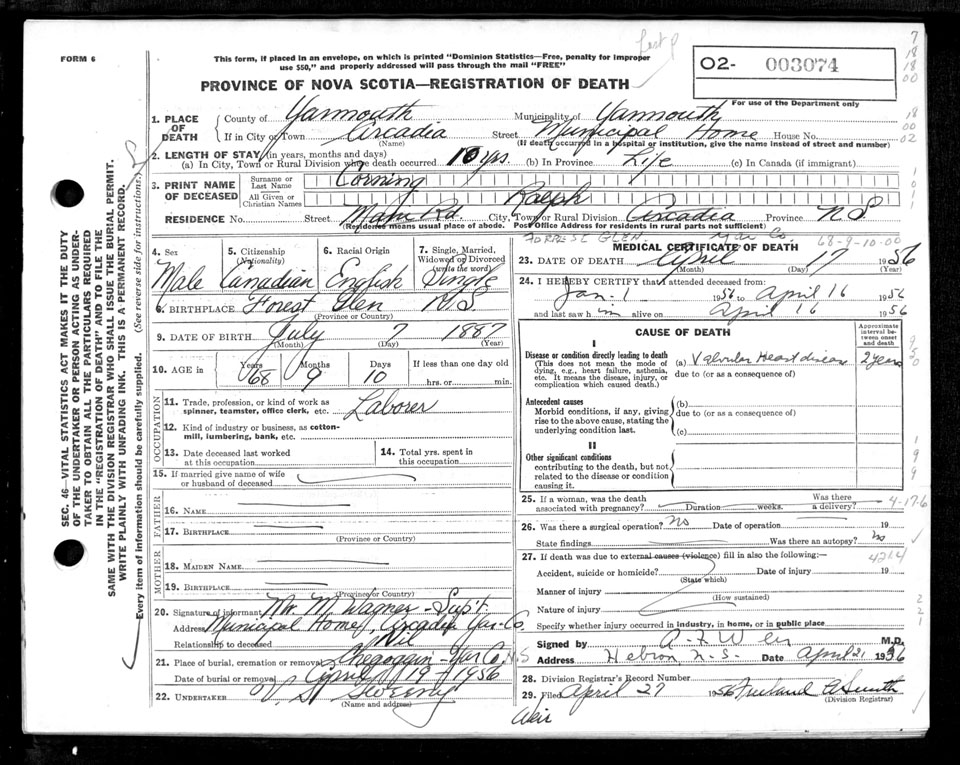 FORM 6
This form, if placed in an envelope, on which is printed "Dominion Statistics—Free, penalty for improper
use $50," and properly addressed will pass through the mail "FREE"
PROVINCE OF NOVA SCOTIA—REGISTRATION OF DEATH
O2- 003074
For use of the Department only
1. PLACE OF DEATH
County of Yarmouth Municipality of Yarmouth
If in City or Town Arcadia Street Municipal Home House No.
(Name) (If death occurred in a hospital or institution, give the name instead of street and number)
2. LENGTH OF STAY (in years, months and days)
(a) In City, Town or Rural Division where death occurred 10 yrs. (b) In Province Life (c) In Canada (if immigrant)
3. PRINT NAME OF DECEASED
Surname or Last Name Corning
All Given or Christian Names Ralph
RESIDENCE No. Street Main Rd. City, Town or Rural Division Arcadia Province N S
(Residence means usual place of abode. Post Office Address for residents in rural parts not sufficient)
4. Sex 5. Citizenship (Nationality) 6. Racial Origin 7. Single, Married, Widowed or Divorced (write the word)
Male Canadian English Single
8. BIRTHPLACE Forest Glen N S
(Province or Country)
9. DATE OF BIRTH July 7 1887
(Month) (Day) (Year)
10. AGE in Years Months Days If less than one day old
68 9 10 hrs. or min.
OCCUPATION
11. Trade, profession, or kind of work as
spinner, teamster, office clerk, etc. Laborer
12. Kind of industry or business, as cotton-
mill, lumbering, bank, etc.
13. Date deceased last worked
at this occupation
14. Total yrs. spent in
this occupation
15. If married give name of wife
or husband of deceased
FATHER
16. NAME
17. BIRTHPLACE
(Province or Country)
MOTHER
18. MAIDEN NAME
19. BIRTHPLACE
(Province or Country)
20. Signature of informant Mr. M. Wagner - Sup't
Address Municipal Home, Arcadia Yar. Co.
Relationship to deceased Nil
21. Place of burial, cremation or removal Chegoggin - Yar Co, N.S
Date of burial or removal April 19 1956
22. UNDERTAKER V. S. Sweeny
(Name and address)
FORREST GLEN
68-9-10-00
MEDICAL CERTIFICATE OF DEATH
23. DATE OF DEATH April 17 1956
(Month) (Day) (Year)
24. I HEREBY CERTIFY that I attended deceased from:
Jan. 1 1956 to April 16 1956
and last saw him alive on April 16 1956
CAUSE OF DEATH
Approximate interval between onset and death
I
Disease or condition directly leading to death
(This does not mean the mode of
dying, e.g., heart failure, asthenia,
etc. It means the disease, injury, or
complication which caused death.)
(a) Valvular Heart disease 2 years
due to (or as a consequence of)
Antecedent causes
Morbid conditions, if any, giving
rise to the above cause, stating the
underlying condition last.
(b)
due to (or as a consequence of)
(c)
II
Other significant conditions
contributing to the death, but not
related to the disease or condition
causing it.
25. If a woman, was the death
associated with pregnancy? Duration weeks. Was there a delivery?
4-17-6
26. Was there a surgical operation? No Date of operation 19
State findings Was there an autopsy? No
27. If death was due to external causes (violence) fill in also the following:—
4214
Accident, suicide or homicide? Date of injury 19
(State which)
Manner of injury
(How sustained)
Nature of injury
Specify whether injury occurred in industry, in home, or in public place
Signed by A. F. Weir M.D.
Address Hebron N.S. Date April 21 1956
28. Division Registrar's Record Number
29. Filed April 27 1956 Freeland A Smith
(Division Registrar)
Weir
SEC. 46—VITAL STATISTICS ACT MAKES IT THE DUTY
OF THE UNDERTAKER OR PERSON ACTING AS UNDER-
TAKER TO OBTAIN ALL THE PARTICULARS REQUIRED
IN THE "REGISTRATION OF DEATH" AND TO FILE THE
SAME WITH THE DIVISION REGISTRAR WHO SHALL ISSUE THE BURIAL PERMIT.
WRITE PLAINLY WITH UNFADING INK. THIS IS A PERMANENT RECORD.
Every item of information should be carefully supplied. (See reverse side for instructions.)